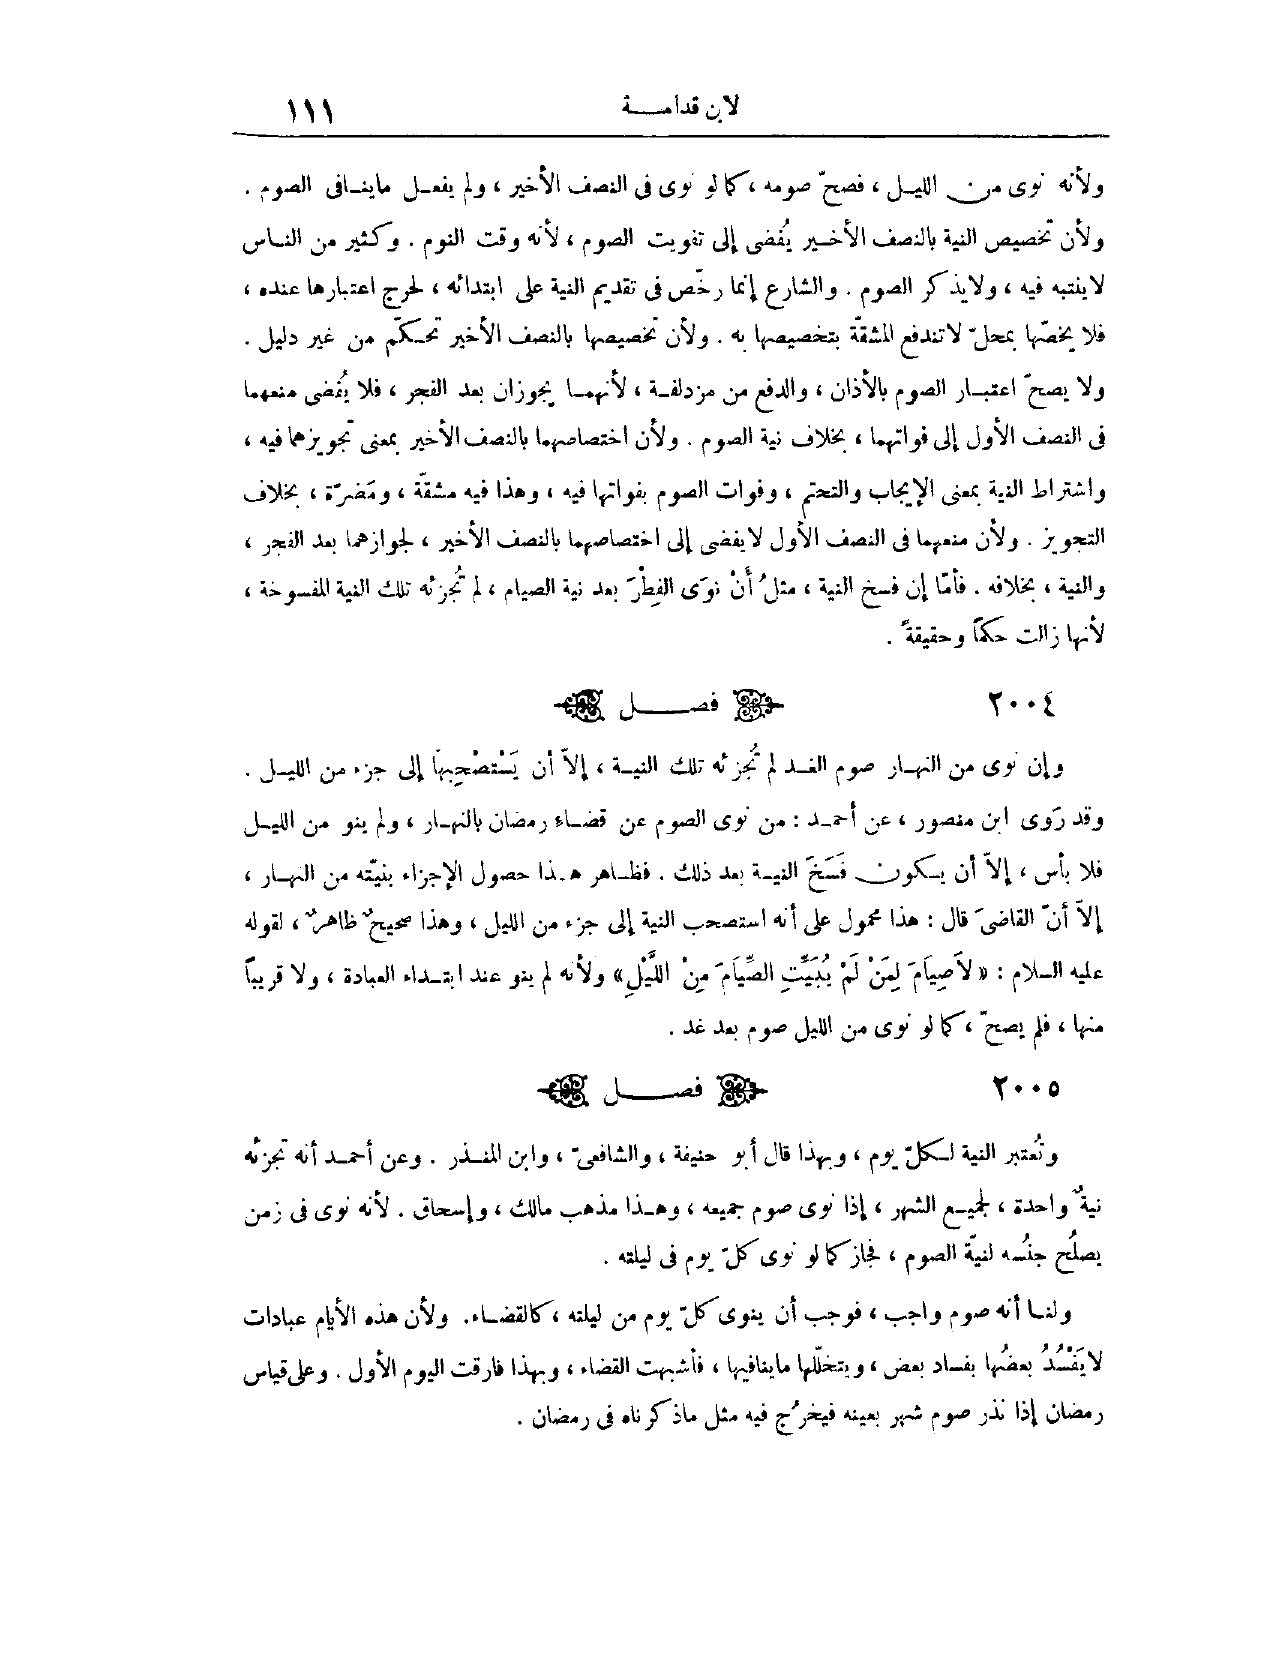 لابن قدامـــة ١١١
ولأنه نوى من الليـل ، فصحّ صومه ، كما لو نوى فى النصف الأخير ، ولم يفعـل ماينـافى الصوم .
ولأن تخصيص النية بالنصف الأخـير يُفضى إلى تفويت الصوم ، لأنه وقت النوم . وكثير من النـاس
لاينتبه فيه ، ولايذكر الصوم . والشارع إنما رخّص فى تقديم النية على ابتدائه ، لحرج اعتبارها عنده ،
فلا يخصّها بمحلّ لاتندفع المشقّة بتخصيصها به . ولأن تخصيصها بالنصف الأخير تحـكّم من غير دليل .
ولا يصحّ اعتبـار الصوم بالأذان ، والدفع من مزدلفـة ، لأنهمـا يجوزان بعد الفجر ، فلا يُفضى منعهما
فى النصف الأول إلى فواتهما ، بخلاف نية الصوم . ولأن اختصاصهما بالنصف الأخير بمعنى تجويزهما فيه ،
واشتراط النية بمعنى الإيجاب والتحتم ، وفوات الصوم بفواتها فيه ، وهذا فيه مشقّة ، ومَضرّة ، بخلاف
التجويز . ولأن منعهما فى النصف الأول لايفضى إلى اختصاصهما بالنصف الأخير ، لجوازهما بعد الفجر ،
والنية ، بخلافه . فأمّا إن فسخ النية ، مثلُ أَنْ نوَى الفِطْرَ بعد نية الصيام ، لم تُجزئه تلك النية المفسوخة ،
لأنها زالت حكمًا وحقيقةً .
٢٠٠٤ فصـــل
وإن نوى من النهـار صوم الغـد لم تُجزئه تلك النيـة ، إلاّ أن يَسْتصْحِبهَا إلى جزء من الليـل .
وقد رَوى ابن منصور ، عن أحمـد : من نوى الصوم عن قضـاء رمضان بالنهـار ، ولم ينو من الليـل
فلا بأس ، إلاّ أن يـكون فَسَخَ النيـة بعد ذلك . فظـاهر هـذا حصول الإجزاء بنيّته من النهـار ،
إلاّ أنّ القاضىَ قال : هذا محمول على أنه استصحب النية إلى جزء من الليل ، وهذا صحيحٌ ظاهرٌ ، لقوله
عليه السلام : « لاَصِيَامَ لِمَنْ لَمْ يُبَيِّتِ الصِّيَامَ مِنْ اللَّيْلِ » ولأنه لم ينو عند ابتـداء العبادة ، ولا قريباً
منها ، فلم يصحّ ، كما لو نوى من الليل صوم بعد غد .
٢٠٠٥ فصـــل
وتُعتبر النية لـكلّ يوم ، وبهذا قال أبو حنيفة ، والشافعىّ ، وابن المنـذر . وعن أحمـد أنه تجزئه
نيةٌ واحدة ، لجميـع الشهر ، إذا نوى صوم جميعه ، وهـذا مذهب مالك ، وإسحاق . لأنه نوى فى زمن
يصلُح جنْسه لنيّة الصوم ، فجاز كما لو نوى كلّ يوم فى ليلته .
ولنـا أنه صوم واجب ، فوجب أن ينوى كلّ يوم من ليلته ، كالقضـاء. ولأن هذه الأيام عبادات
لايَفْسُدُ بعضُها بفساد بعض ، ويتخلّلها ماينافيها ، فأشبهت القضاء ، وبهذا فارقت اليوم الأول . وعلى قياس
رمضان إذا نذر صوم شهر بعينه فيخرُج فيه مثل ماذكرناه فى رمضان .